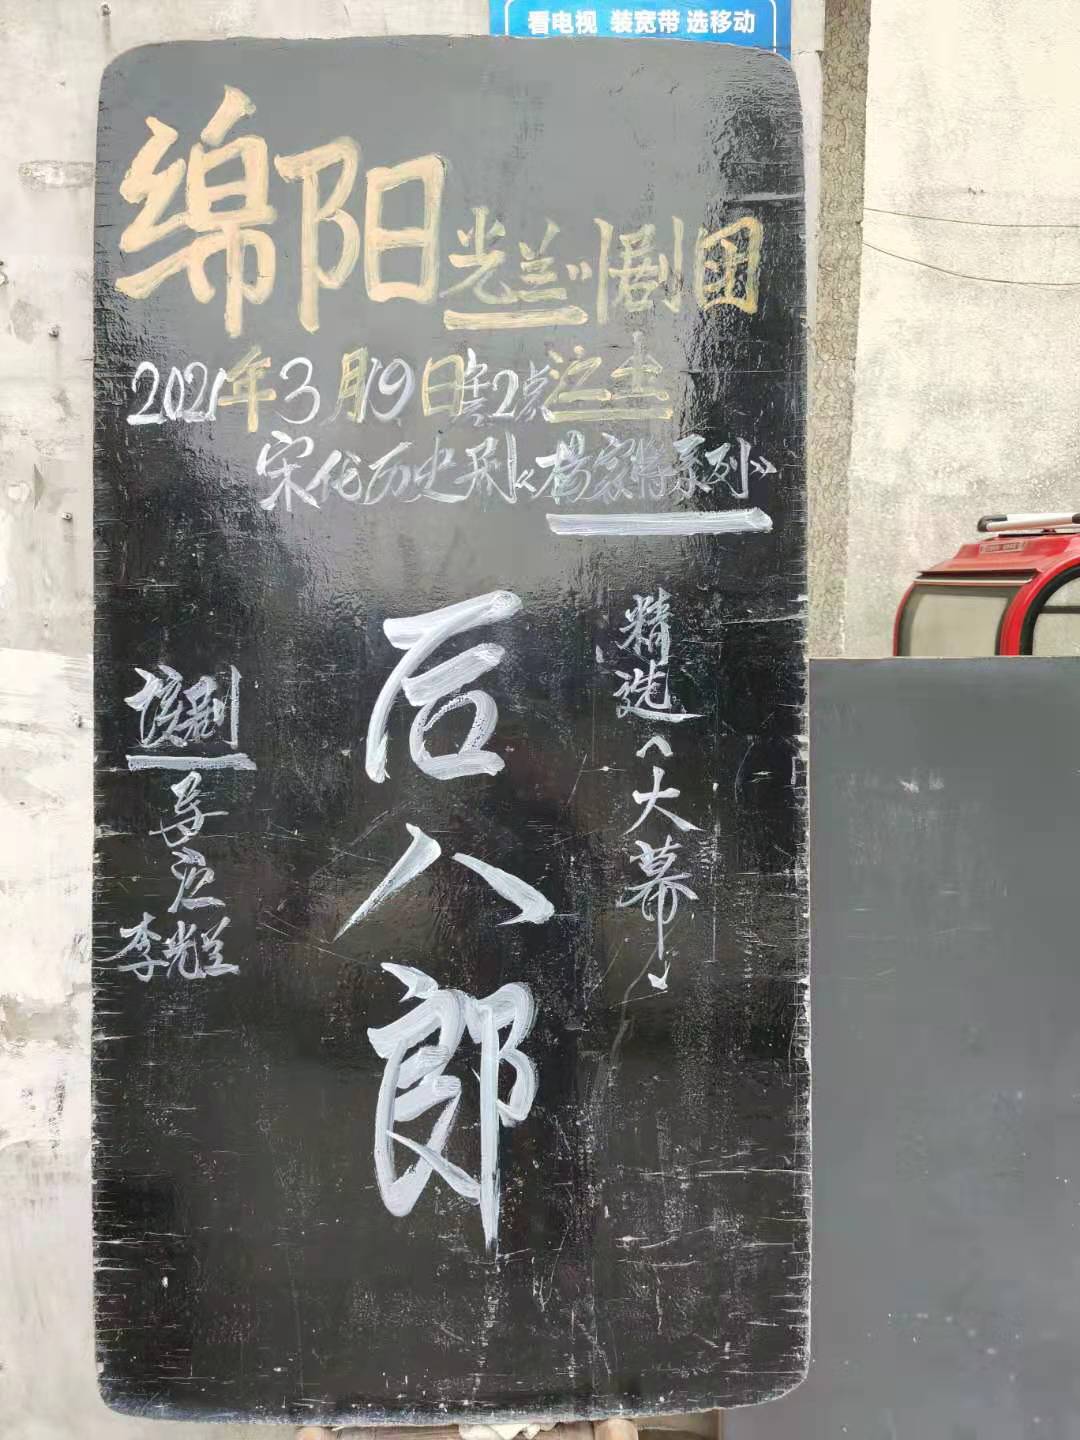 看电视 装宽带 选移动
绵阳光兰川剧团
2021年3月19日2点注
宋代历史剧《杨家将系列》
精选
大幕
后八郎
李光兰